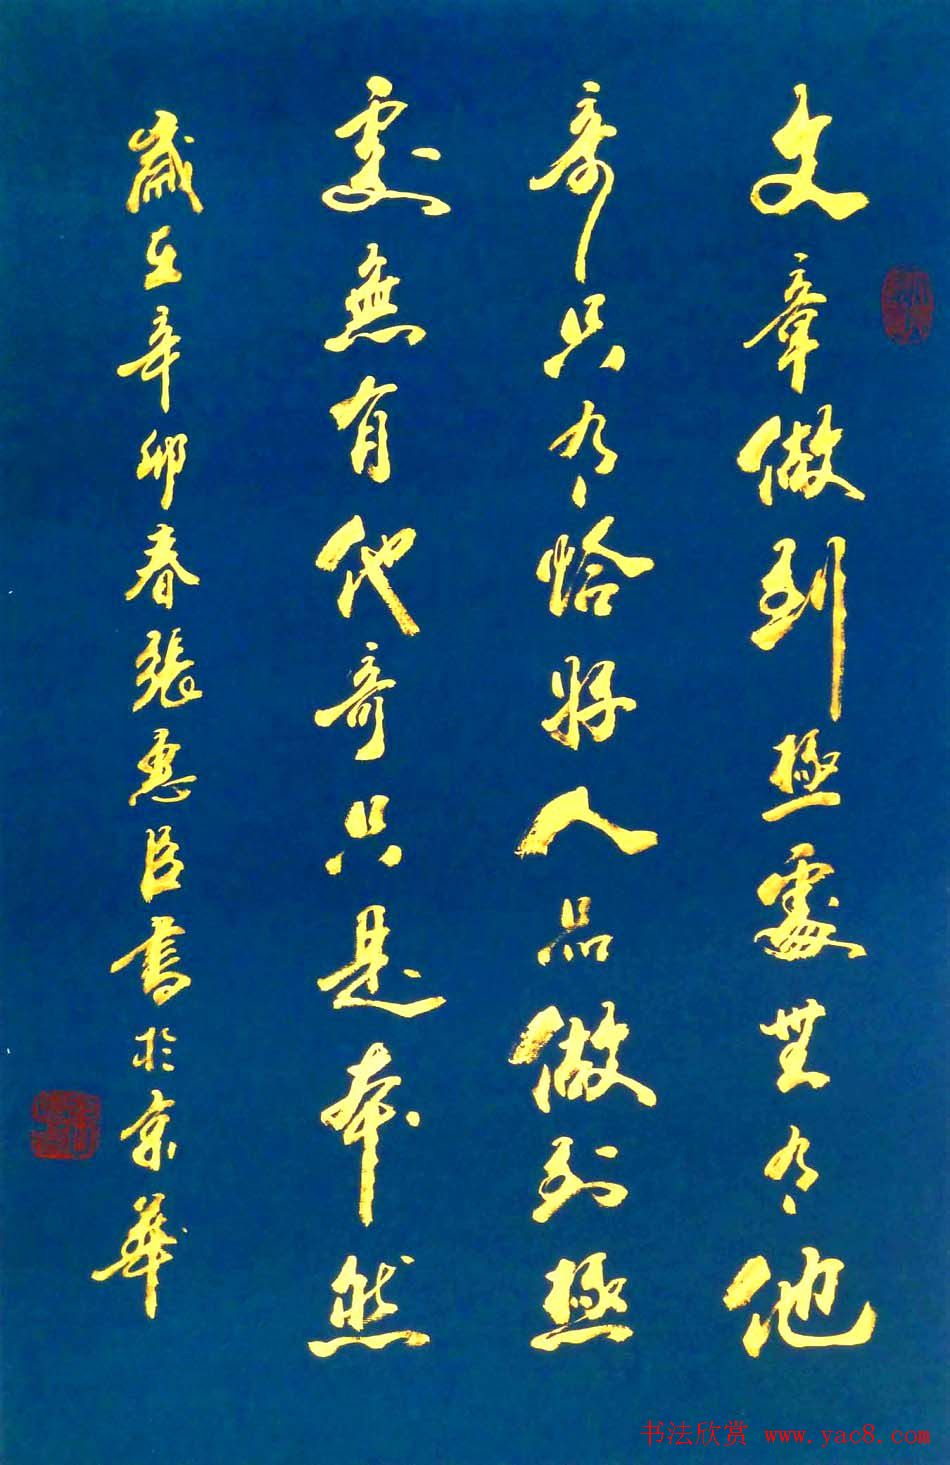 文章做到極處無有他
奇只有恰好人品做到極
處無有他奇只是本然
歲在辛卯春張惠臣書於京華
书法欣赏 www.yac8.com